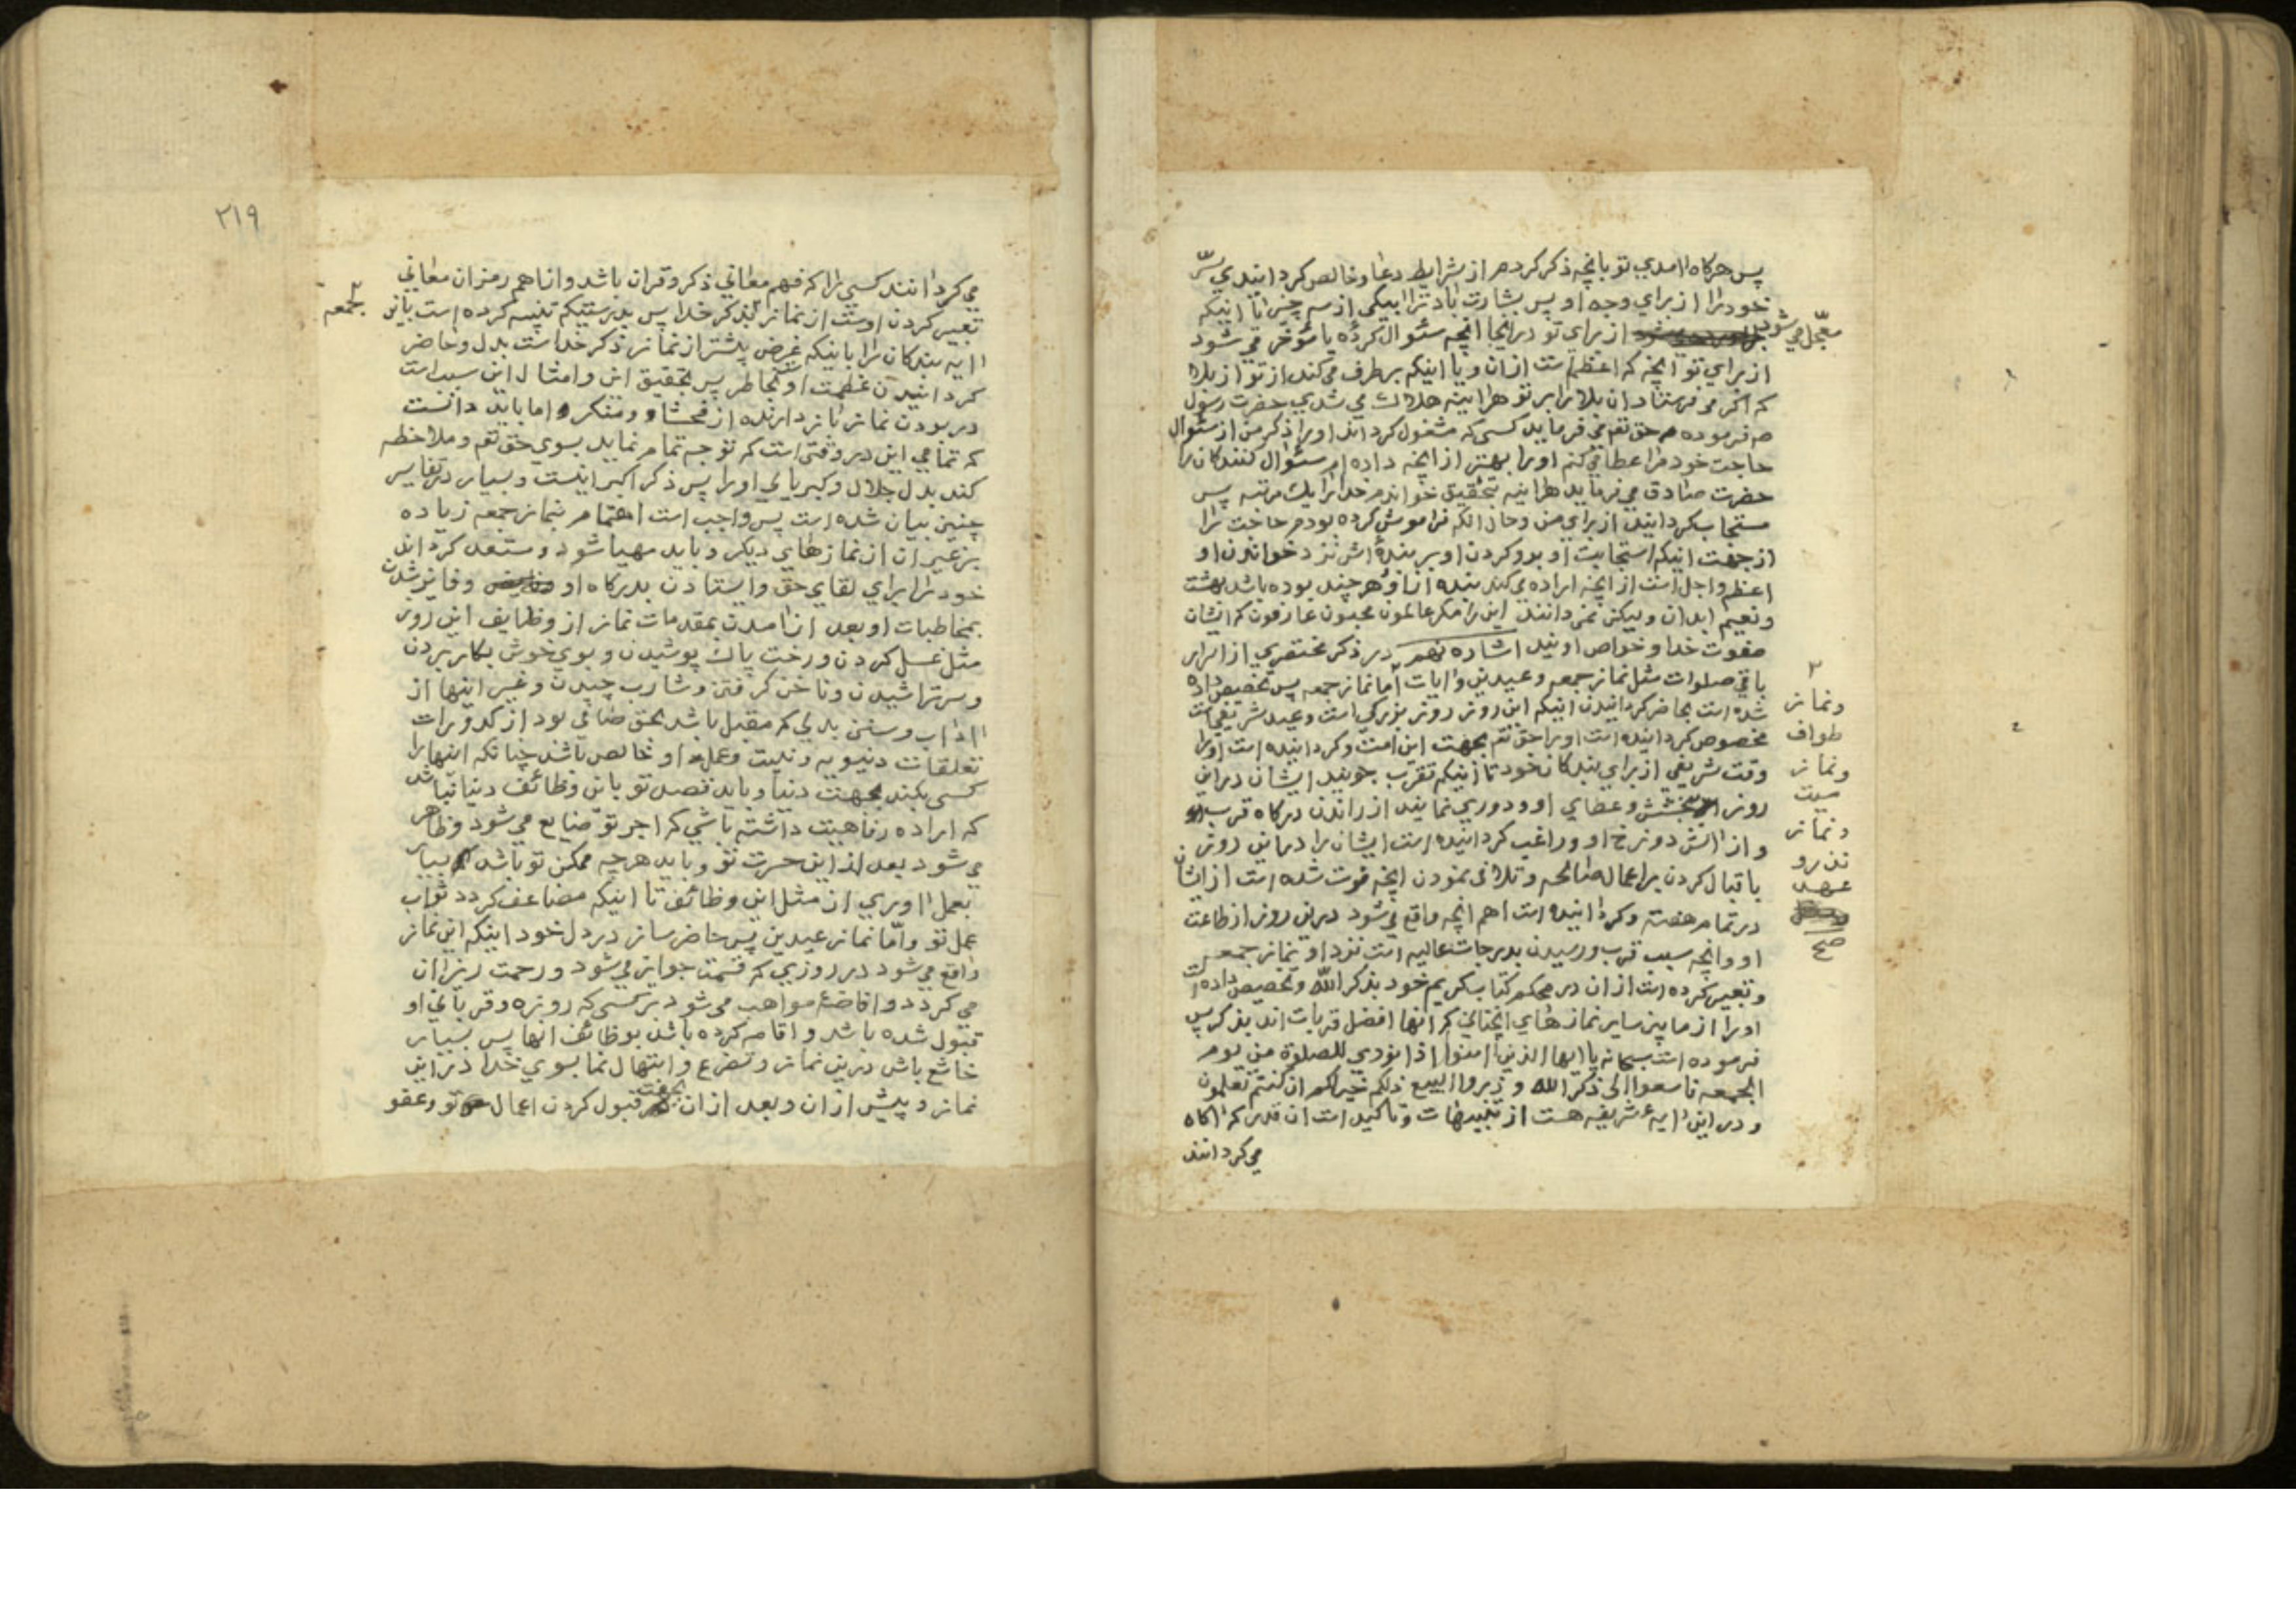 پس هرکاه امدي تو بانچه ذکر کردم از شرایط دعا و خالص کردانیدي سرّ
خود را از براي وجه او پس بشارت باد ترا بیکي از سه چیز تا اینکه
معجّل مي شود از براي تو درانجا انچه سئوال کردهٔ یا مؤخر مي شود
از براي تو انچه که اعظم است ازان و یا اینکه برطرف مي کند از تو از بلا
که اکر مي فرستاد ان بلا را بر تو هراینه هلاك مي شدي حضرت رسول
ص فرموده حق تعم مي فرماید کسي که مشغول کرداند او را ذکر من از سئوال
حاجت خود مرا عطا مي کنم او را بهتر از انچه داده ام سئوال کنندکان را
حضرت صادق مي فرماید هراینه بتحقیق خواندم خدا را یك مرتبه پس
مستجاب کردانید از براي من و حال انکه فراموش کرده بودم حاجت را
از جهت اینکه استجابت او و رو کردن او بر بندهٔ اش نزد خواندن او
اعظم و اجل است از انچه اراده مي کند بنده از او هر چند بوده باشد بهشت
و نعیم ابدان و لیکن نمي دانند این را مکر عالمون محبون عارفون که ایشان
صفوت خدا و خواص اویند اشاده نهم در ذکر مختصري از اسرار
باقي صلوات مثل نماز جمعه و عیدین و ایات اما نماز جمعه پس تخصیص داده
شده است بحاضر کردانیدن اینکه این روز روز بزرکي است و عید شریفي است
مخصوص کردانیده است او را حق تعم بجهت این امت و کردانیده است او را
وقت شریفي از براي بندکان خود تا اینکه تقرب جویند ایشان دراین
روز بخشش و عطاي او و دوري نمایند از راندن درکاه قرب او
و از اتش دوزخ او و راغب کردانیده است ایشان را دراین روز
باقبال کردن بر اعمال صالحه و تلافي نمودن انچه فوت شده است از ایشان
در تمام هفته و کردانیده است اهم انچه واقع مي شود دراین روز از طاعت
او و انچه سبب قرب و رسیدن بدرجات عالیه است نزد او نماز جمعه
و تعبیر کرده است ازان در محکم کتاب کریم خود بذکر الله و تخصیص داده است
او را از مابین سایر نمازهاي انچناني که انها افضل قربات اند بذکر پس
فرموده است سبحانه یا ایها الذین امنوا اذا نودي للصلوة من یوم
الجمعه فاسعوا الی ذکر الله و ذروا البیع ذلکم خیر لکم ان کنتم تعلمون
و دراین ایهٔ شریفه هست از تنبیهات و تاکید است ان قدر که اکاه
مي کردانند
۲
و نماز
طواف
و نماز
میت
و نماز
نذر و
عهد
صح
۲۱۹
مي کردانند کسي را که فهم معاني ذکر و قران باشد و از اهم رمز ان معاني
تعبیر کردن اوست از نماز بذکر خدا پس بدرستیکه تنبیه کرده است باین
ایه بندکان را باینکه غرض بیشتر از نماز ذکر خداست بدل و حاضر
کردانیدن عظمت او بخاطر پس بتحقیق این و امثال این سبب است
در بودن نماز باز دارنده از فحشاء و منکر و اما باید دانست
که تمامي این در وقتي است که توجه تمام نماید بسوي حق تعم و ملاحظه
کند بدل جلال و کبریایي او را پس ذکر اکبر اینست و بسیار در تفاسیر
چنین بیان شده است پس واجب است اهتمام بنماز جمعه زیاده
بر غیر ان از نمازهاي دیکر و باید مهیا شود و مستعد کرداند
خود را براي لقاي حق و ایستادن بدرکاه او و فایز شدن
بمخاطبات او بعد از امدن بمقدمات نماز از وظایف این روز
مثل غسل کردن و رخت پاك پوشیدن و بوي خوش بکار بردن
و سر تراشیدن و ناخن کرفتن و شارب چیدن و غیر اینها از
اداب و سنن بدلي که مقبل باشد بحق صافي بود از کدورات
تعلقات دنیویه و نیت و عمل او خالص باشد چنانکه اینها را
کسي بکند بجهت دنیا و باید قصد تو باین وظائف دنیا نباشد
که اراده رفاهیت داشته باشي که اجر تو ضایع مي شود و ظاهر
مي شود بعد از این حسرت تو و باید هرچه ممکن تو باشد بسیار
بعمل اوري از مثل این وظائف تا اینکه مضاعف کردد ثواب
عمل تو و امّا نماز عیدین پس حاضر ساز در دل خود اینکه این نماز
واقع مي شود در روزي که قسمت جوایز مي شود و رحمت ریزان
مي کردد و افاضهٔ مواهب مي شود بر کسي که روزه و قرباني او
قبول شده باشد و اقامه کرده باشد بوظائف انها پس بسیار
خاشع باش درین نماز و تضرع و ابتهال نما بسوي خدا دراین
نماز و پیش ازان و بعد ازان بجهت قبول کردن اعمال تو و عفو
بجمعه